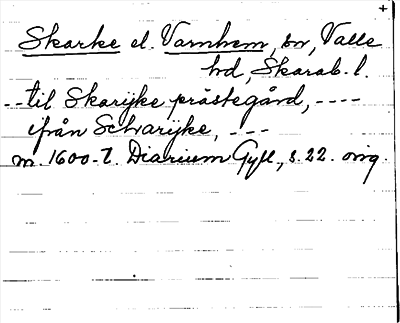 +
Skarke el. Varnhem, sn, Valle
hd, Skarab. l.
-- til Skarijke prästegård, ----
ifrån Scharijke, ---
m. 1600-t. Diarium Gyll., s. 22. orig.